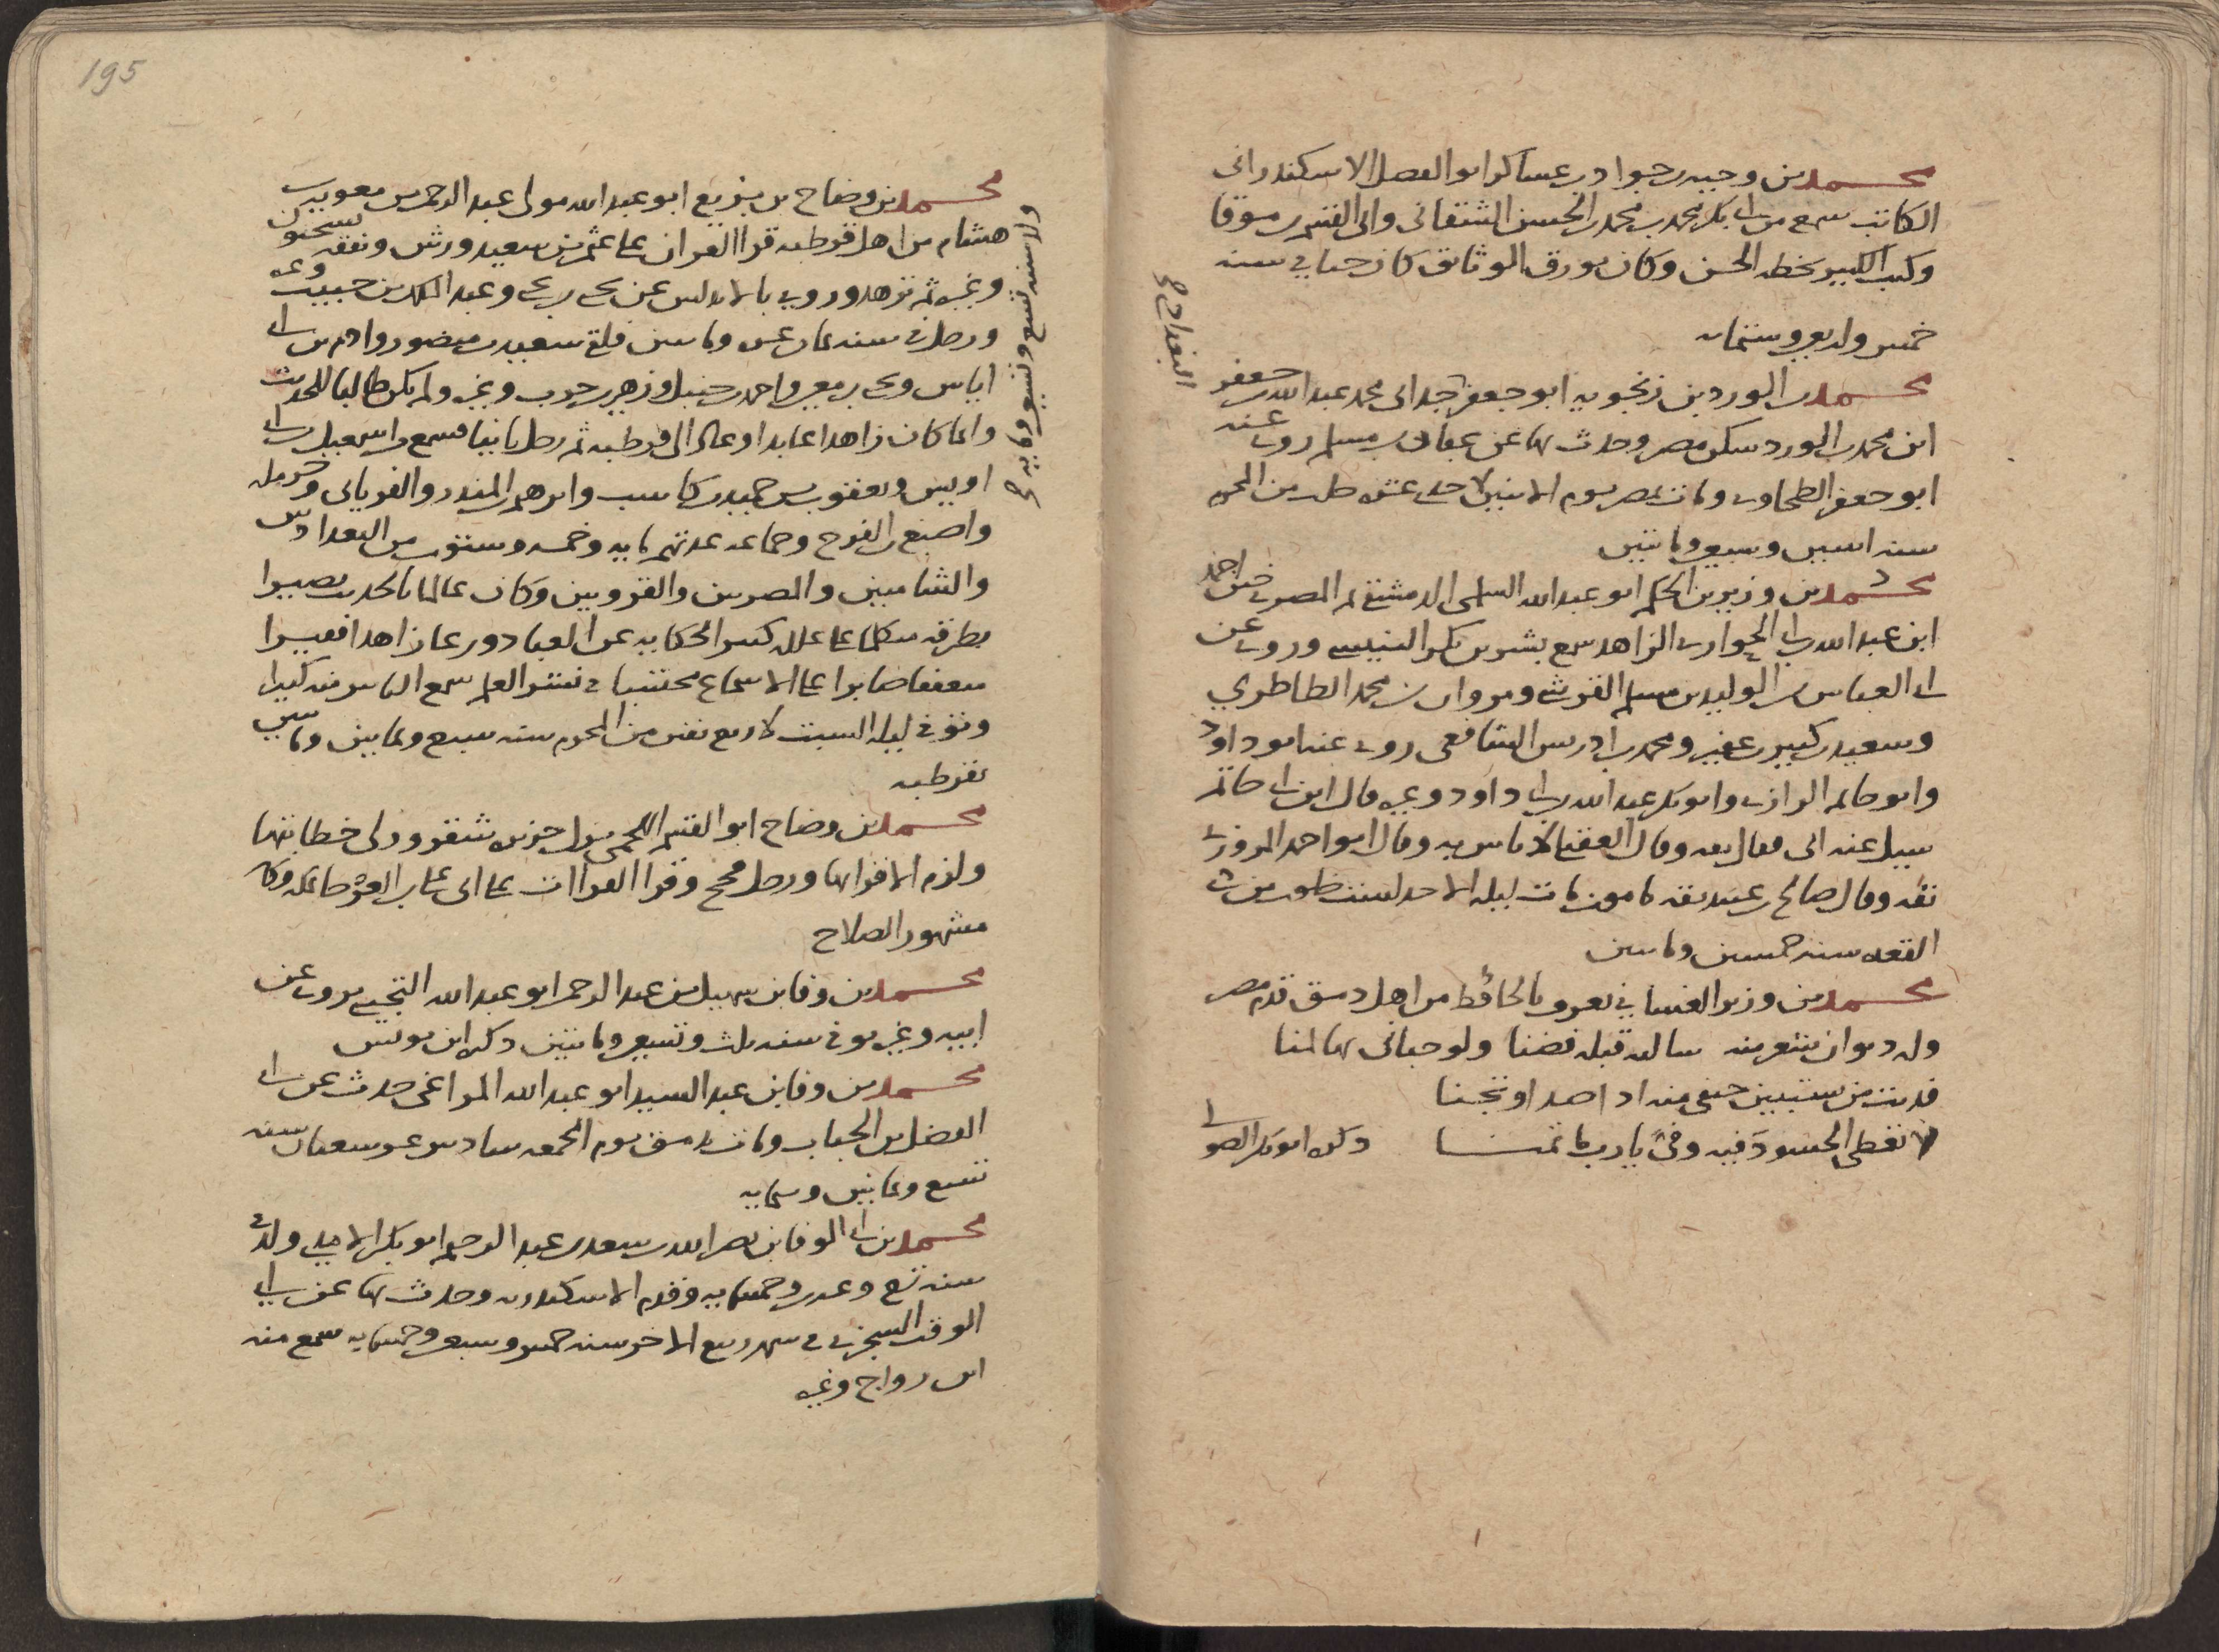 محمد بن وجيه بن جواد بن عساكر ابو الفضل الاسكندرانى
الكاتب سمع من ابى بكر محمد بن محمد بن الحسن الشنقانى والى القسم بن موقا
وكتب الكبير بخطه الحسن وكان يورق الوثائق كان حيا فى سنه
خمس واربعين وستمائه
محمد بن الورد بن زنجويه ابو جعفر جد ابى محمد عبد الله بن جعفر
ابن محمد بن الورد سكن مصر وحدث بها عن عفان بن مسلم روى عنه
ابو جعفر الطحاوى ومات بمصر يوم الاثنين لاحدى عشره خلت من المحرم
سنه اثنين وسبعين ومائتين
البغدادى
محمد بن وزير بن الحكم ابو عبد الله السلمى الدمشقى ثم المصرى ختن احمد
ابن عبد الله بن ابى الحوارى الزاهد سمع بشر بن بكر التنيسى وروى عن
ابى العباس الوليد بن مسلم القرشى ومروان بن محمد الطاطرى
وسعيد بن كثير بن عفير ومحمد بن ادريس الشافعى روى عنه ابو داود
وابو حاتم الرازى وابو بكر عبد الله بن ابى داود وغيره قال ابن ابى حاتم
سيل عنه ابى فقال ثقه وقال العقيلى لا باس به وقال ابو احمد المروزى
ثقه وقال صالح بن عبيد ثقه مامون مات ليله الاحد لست خلون من ذى
القعده سنه خمسين ومائتين
محمد بن وزير الغسانى يعرف بالحافظ من اهل دمشق قدم مصر
وله ديوان شعر منه سالته قبله فضنا ولو حبانى بها لمنا
قد بت من سببين حتفى منه اذا صد او تجنا
تغطى الحسود فيه وفى يا رب ما تمنا ذكره ابو بكر الصولى
195
محمد بن وضاح بن بزيع ابو عبد الله مولى عبد الرحمن بن معويه بن
هشام من اهل قرطبه قرا القران على عثمن بن سعيد ورش وتفقه بسحنون
وغيره ثم تزهد وروى بالاندلس عن يحيى بن يحيى وعبد الملك بن حبيب وغيره
ورحل فى سنه ثمان عشره ومائتين فلقى سعيد بن منصور وادم بن ابى
اياس ويحيى بن معين واحمد بن حنبل وزهير بن حرب وغيره ولم يكن طالبا للحديث
وانما كان زاهدا عابدا وعاد الى قرطبه ثم رحل ثانيا فسمع من اسمعيل بن ابى
اويس ويعقوب بن حميد بن كاسب وابرهيم بن المنذر والفريابى وحرمله
واصبغ بن الفرج وجماعه عدتهم مايه وخمسه وستون من البغدادين
والشاميين والمصريين والقزوينين وكان عالما بالحديث بصيرا
بطرقه متكلما على علله كثير الحكايه عن العباد ورعا زاهدا فقيرا
متعففا صابرا على الاسماع محتسبا فى نشر العلم سمع الناس منه كثيرا
وتوفى ليله السبت لاربع بقين من المحرم سنه سبع وثمانين ومائتين
بقرطبه
ولد سنه تسع وتسعين ومايه
محمد بن وضاح ابو القسم اللخمى نزل جزيره شقر وولى خطابتها
ولزم الاقرا بها ورحل فحج وقرا القراات على ابى على بن العرجا بمكه وكان
مشهور الصلاح
محمد بن وفا بن سهيل بن عبد الرحمن ابو عبد الله التجيبى يروى عن
ابيه وغيره توفى سنه ثلث وتسعين ومائتين ذكره ابن يونس
محمد بن وفا بن عبد السيد ابو عبد الله المراغى حدث عن ابى
الفضل بن الجباب ومات بدمشق يوم الجمعه سادس عشر شعبان سنه
تسع وثمانين وستمايه
محمد بن ابى الوفا بن نصر الله بن سعد بن عبد الرحيم ابو بكر ولد فى
سنه تسع وعشرين وخمسمايه وقدم الاسكندريه وحدث بها عن ابى
الوقت السجزى فى شهر ربيع الاخر سنه خمس وسبعين وخمسمايه سمع منه
ابن رواج وغيره